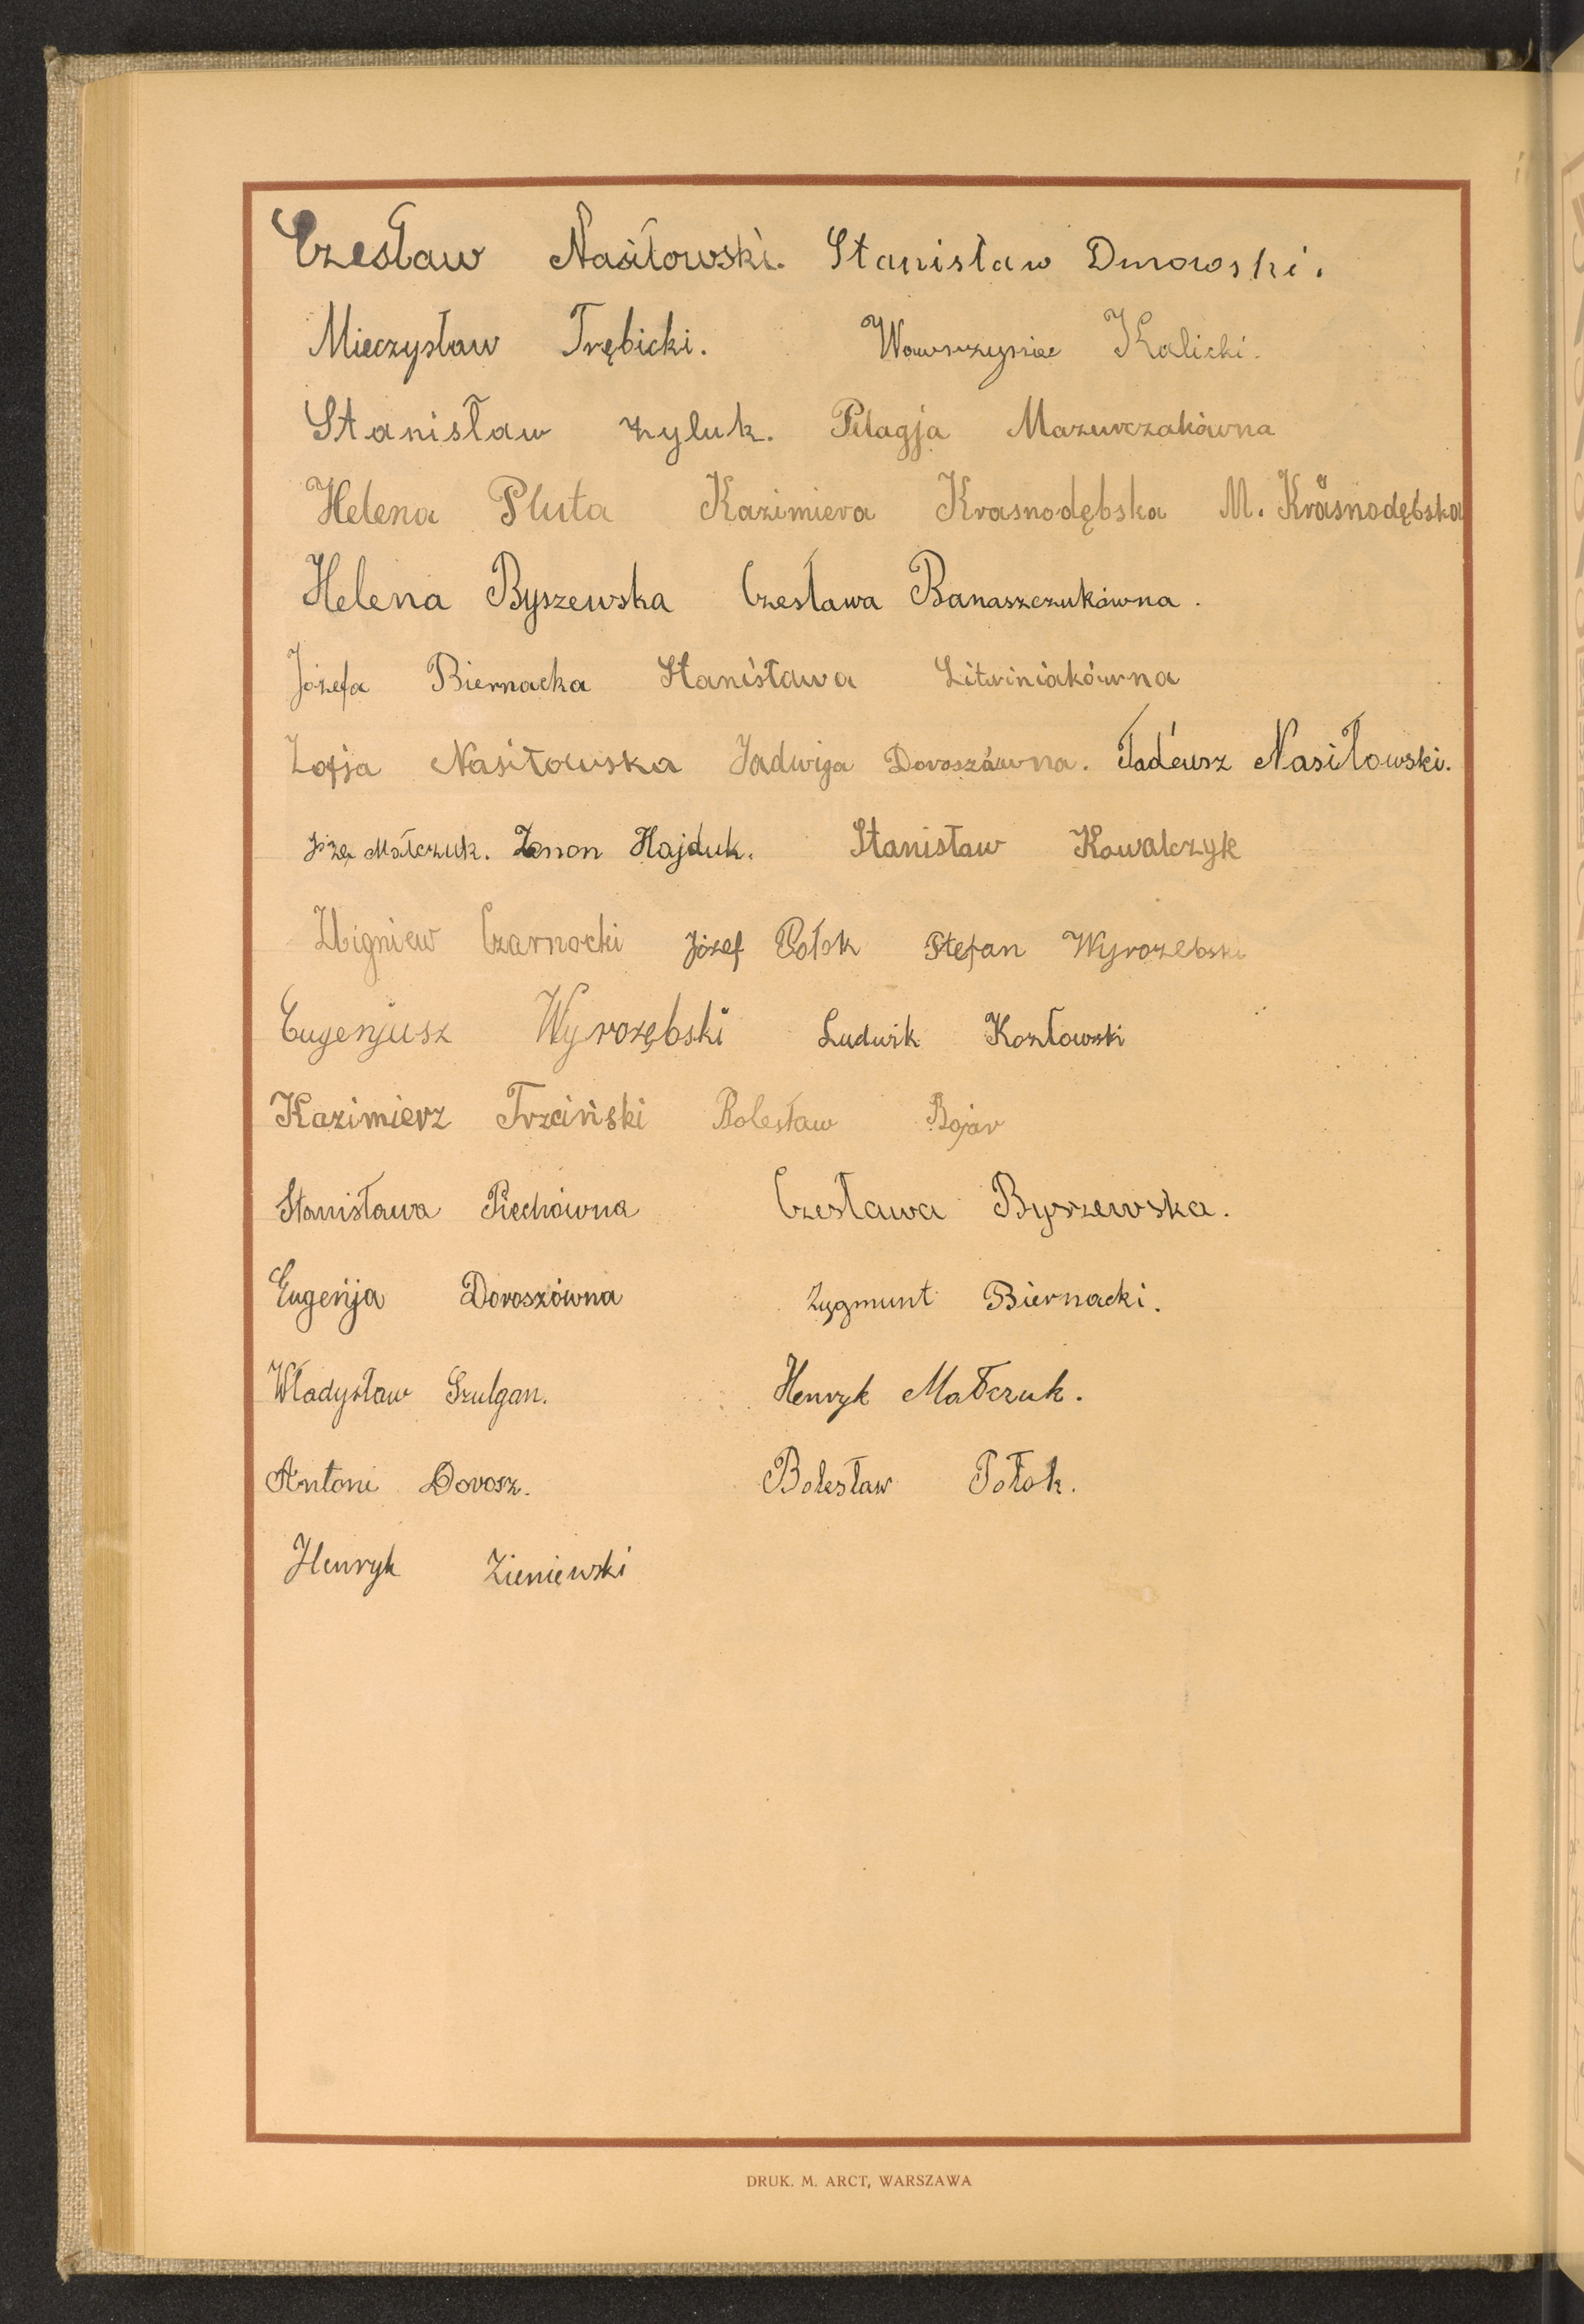 Czesław Nasiłowski. Stanisław Dmowski.
Mieczysław Trębicki. Wawrzyniec Kalicki.
Stanisław Żyluk. Pelagja Mazurczakówna
Helena Pluta Kazimiera Krasnodębska M. Krasnodębska
Helena Byszewska Czesława Banaszczukówna.
Józefa Biernacka Stanisława Litwiniakówna
Zofja Nasiłowska Jadwiga Doroszówna. Tadeusz Nasiłowski.
Małczuk. Zenon Hajduk. Stanisław Kowalczyk
Zbigniew Czarnocki Józef Potok Stefan Wyrozebski
Eugenjusz Wyrozębski Ludwik Kozłowski
Kazimierz Trzciński Bolesław Bojar
Stanisława Piechówna Czesława Byszewska.
Eugenja Doroszówna Zygmunt Biernacki.
Władysław Szulgan. Henryk Małczuk.
Antoni Dorosz. Bolesław Potok.
Henryk Zieniewski
DRUK. M. ARCT, WARSZAWA